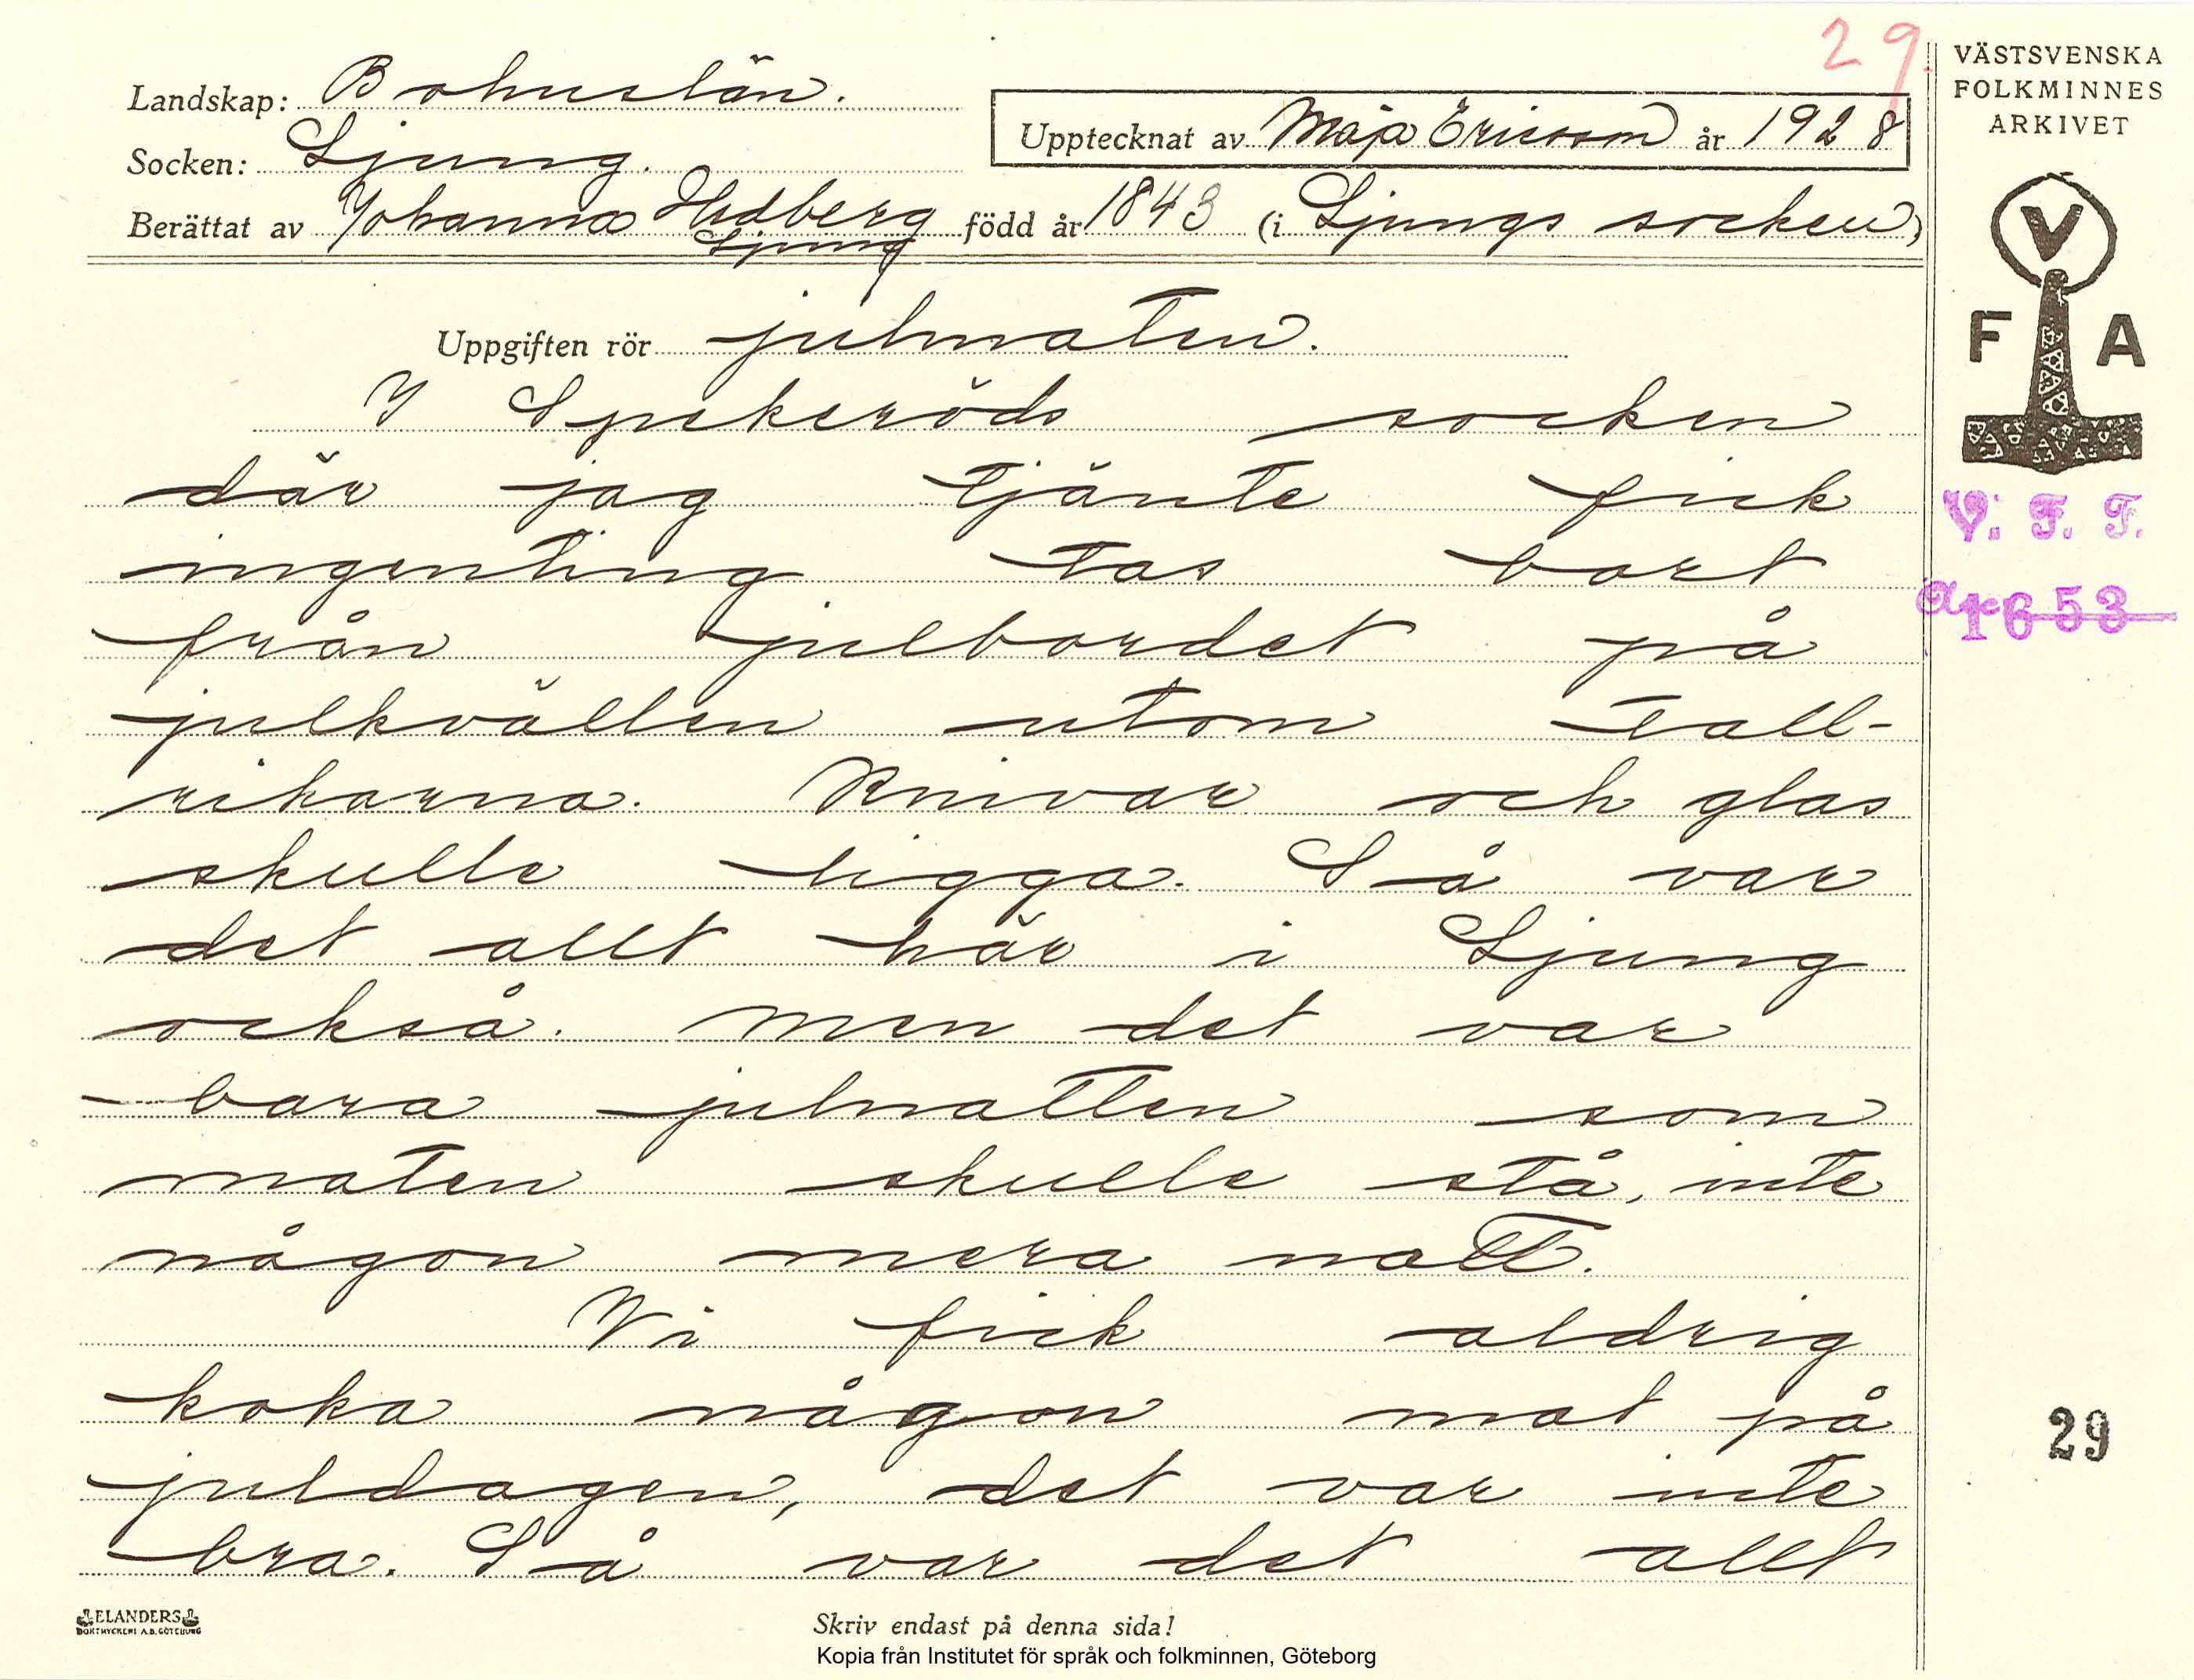 29
Landskap: Bohuslän.
Socken: Ljung.
Upptecknat av Maja Ericson år 1928
Berättat av Johanna Hedberg född år 1843 (i Ljungs socken)
Ljung
Uppgiften rör julmaten.
I Spekeröds socken
där jag tjänte fick
ingenting tas bort
från julbordet på
julkvällen utom tall-
rikarna. Knivar och glas
skulle ligga. Så var
det allt här i Ljung
också. Men det var
bara julnatten som
maten skulle stå, inte
någon mera natt.
Vi fick aldrig
koka någon mat på
juldagen, det var inte
bra. Så var det allt
VÄSTSVENSKA
FOLKMINNES
ARKIVET
V
F A
V. F. F.
1653
29
ELANDERS
BOKTRYCKERI A.B. GÖTEBORG
Skriv endast på denna sida!
Kopia från Institutet för språk och folkminnen, Göteborg